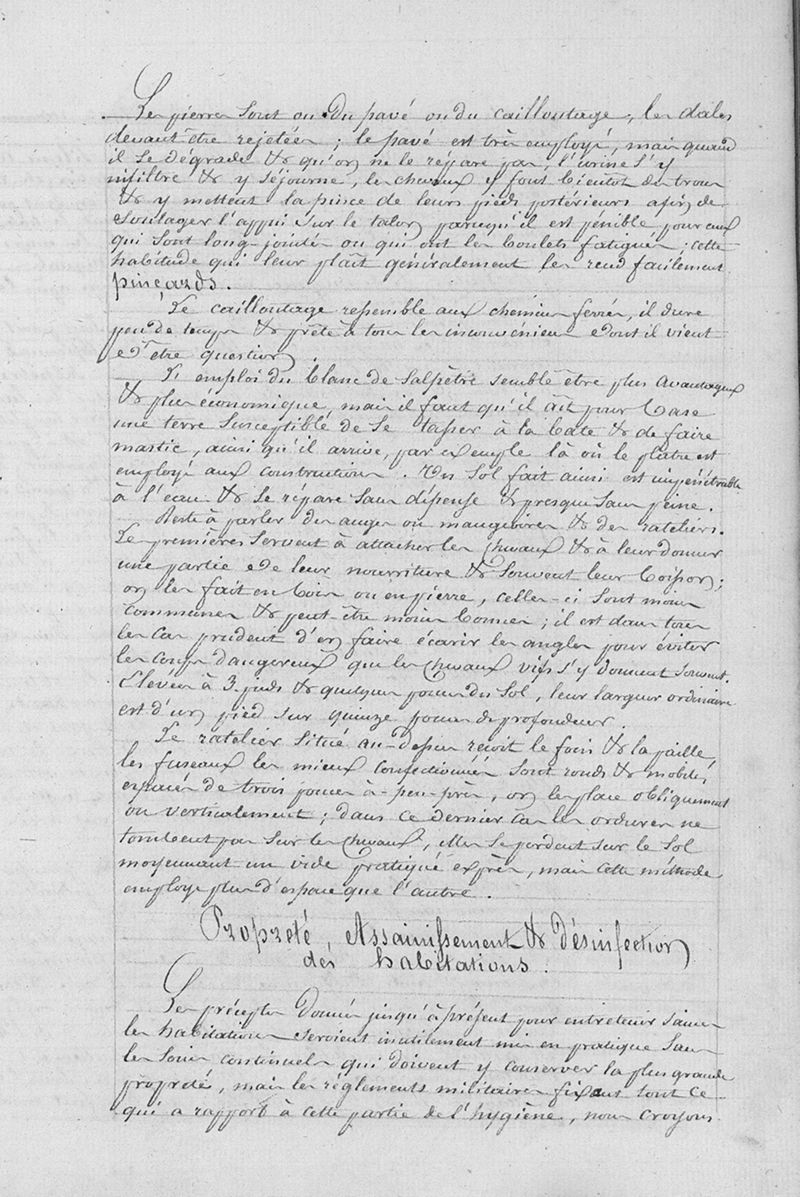 Les pierres sont ou du pavé ou du cailloutage, les dales
devant être rejetées ; le pavé est très employé, mais quand
il se dégrade & qu'on ne le répare pas, l'urine s'y
infiltre & y séjourne, les chevaux y font bientôt des trous
& y mettent la pince de leurs pieds postérieurs afin de
soulager l'appui sur le talon parcequ'il est pénible pour eux
qui sont long-jointés ou qui ont les boulets fatigués ; cette
habitude qui leur plaît généralement les rend facilement
pinçards.
Le cailloutage ressemble aux chemins ferrés, il dure
peu de temps & prête à tous les inconvénients dont il vient
d'être question.
L'emploi du blanc de salpêtre semble être plus avantageux
& plus économique, mais il faut qu'il ait pour base
une terre susceptible de se tasser à la bate & de faire
mastic, ainsi qu'il arrive, par exemple là où le plâtre est
employé aux constructions. Un sol fait ainsi est impénétrable
à l'eau & se répare sans dépense & presque sans peine.
Reste à parler des auges ou mangeoires & des rateliers.
Le premières servent à attacher les chevaux & à leur donner
une partie de leur nourriture & souvent leur boisson ;
on les fait en bois ou en pierre, celles-ci sont moins
communes & peut-être moins bonnes ; il est dans tous
les cas prudent d'en faire écarir les angles pour éviter
les coups dangereux que les chevaux vifs s'y donnent souvent.
Elevées à 3 pieds & quelques pouces du sol, leur largeur ordinaire
est d'un pied sur quinze pouces de profondeur.
Le ratelier situé au-dessus reçoit le foin & la paille,
les fuseaux les mieux confectionnés sont ronds & mobiles,
espacés de trois pouces à-peu-près, on les place obliquement
ou verticalement ; dans ce dernier cas les ordures ne
tombent pas sur les chevaux, elles se perdent sur le sol
moyennant un vide pratiqué exprès, mais cette méthode
employe plus d'espace que l'autre.
Propreté, Assainissement & désinfection
des habitations.
Les préceptes donnés jusqu'à présent pour entretenir saines
les habitations seroient inutilement mis en pratique sans
les soins continuels qui doivent y conserver la plus grande
propreté, mais les réglements militaires fixant tout ce
qui a rapport à cette partie de l'hygiène, nous croyons